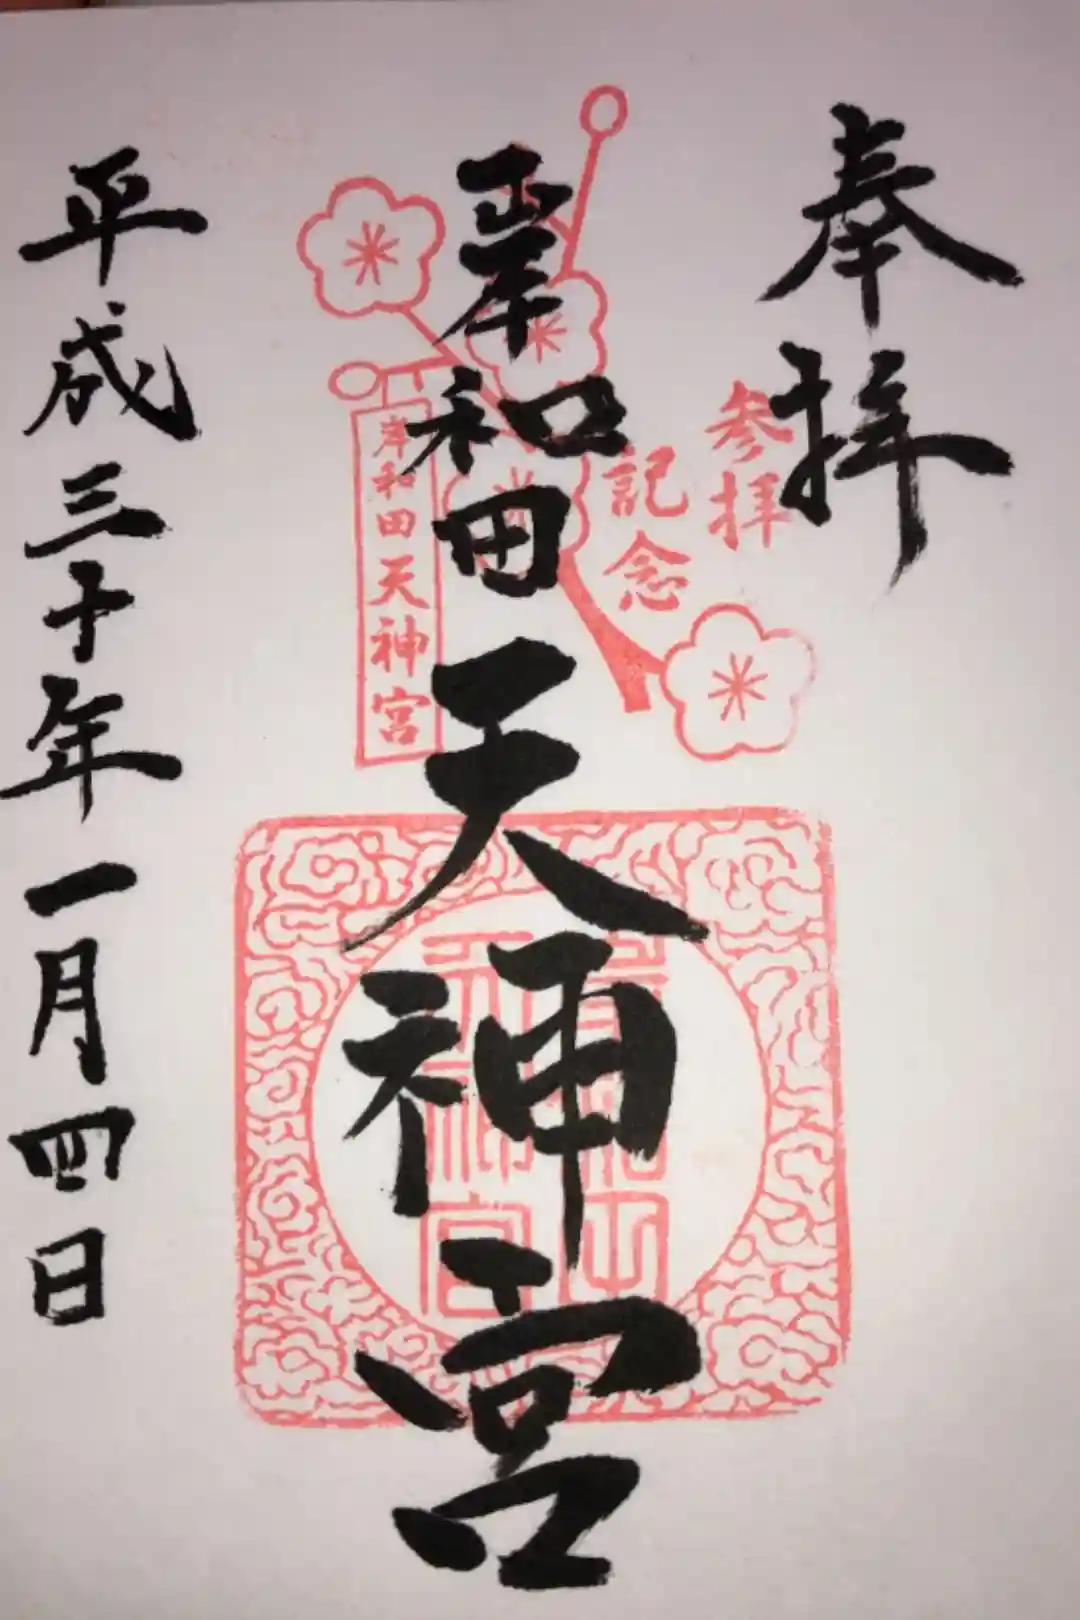 奉拝
参拝
記念
岸和田天神宮
岸和田天神宮
岸和田
天神宮
平成三十年一月四日